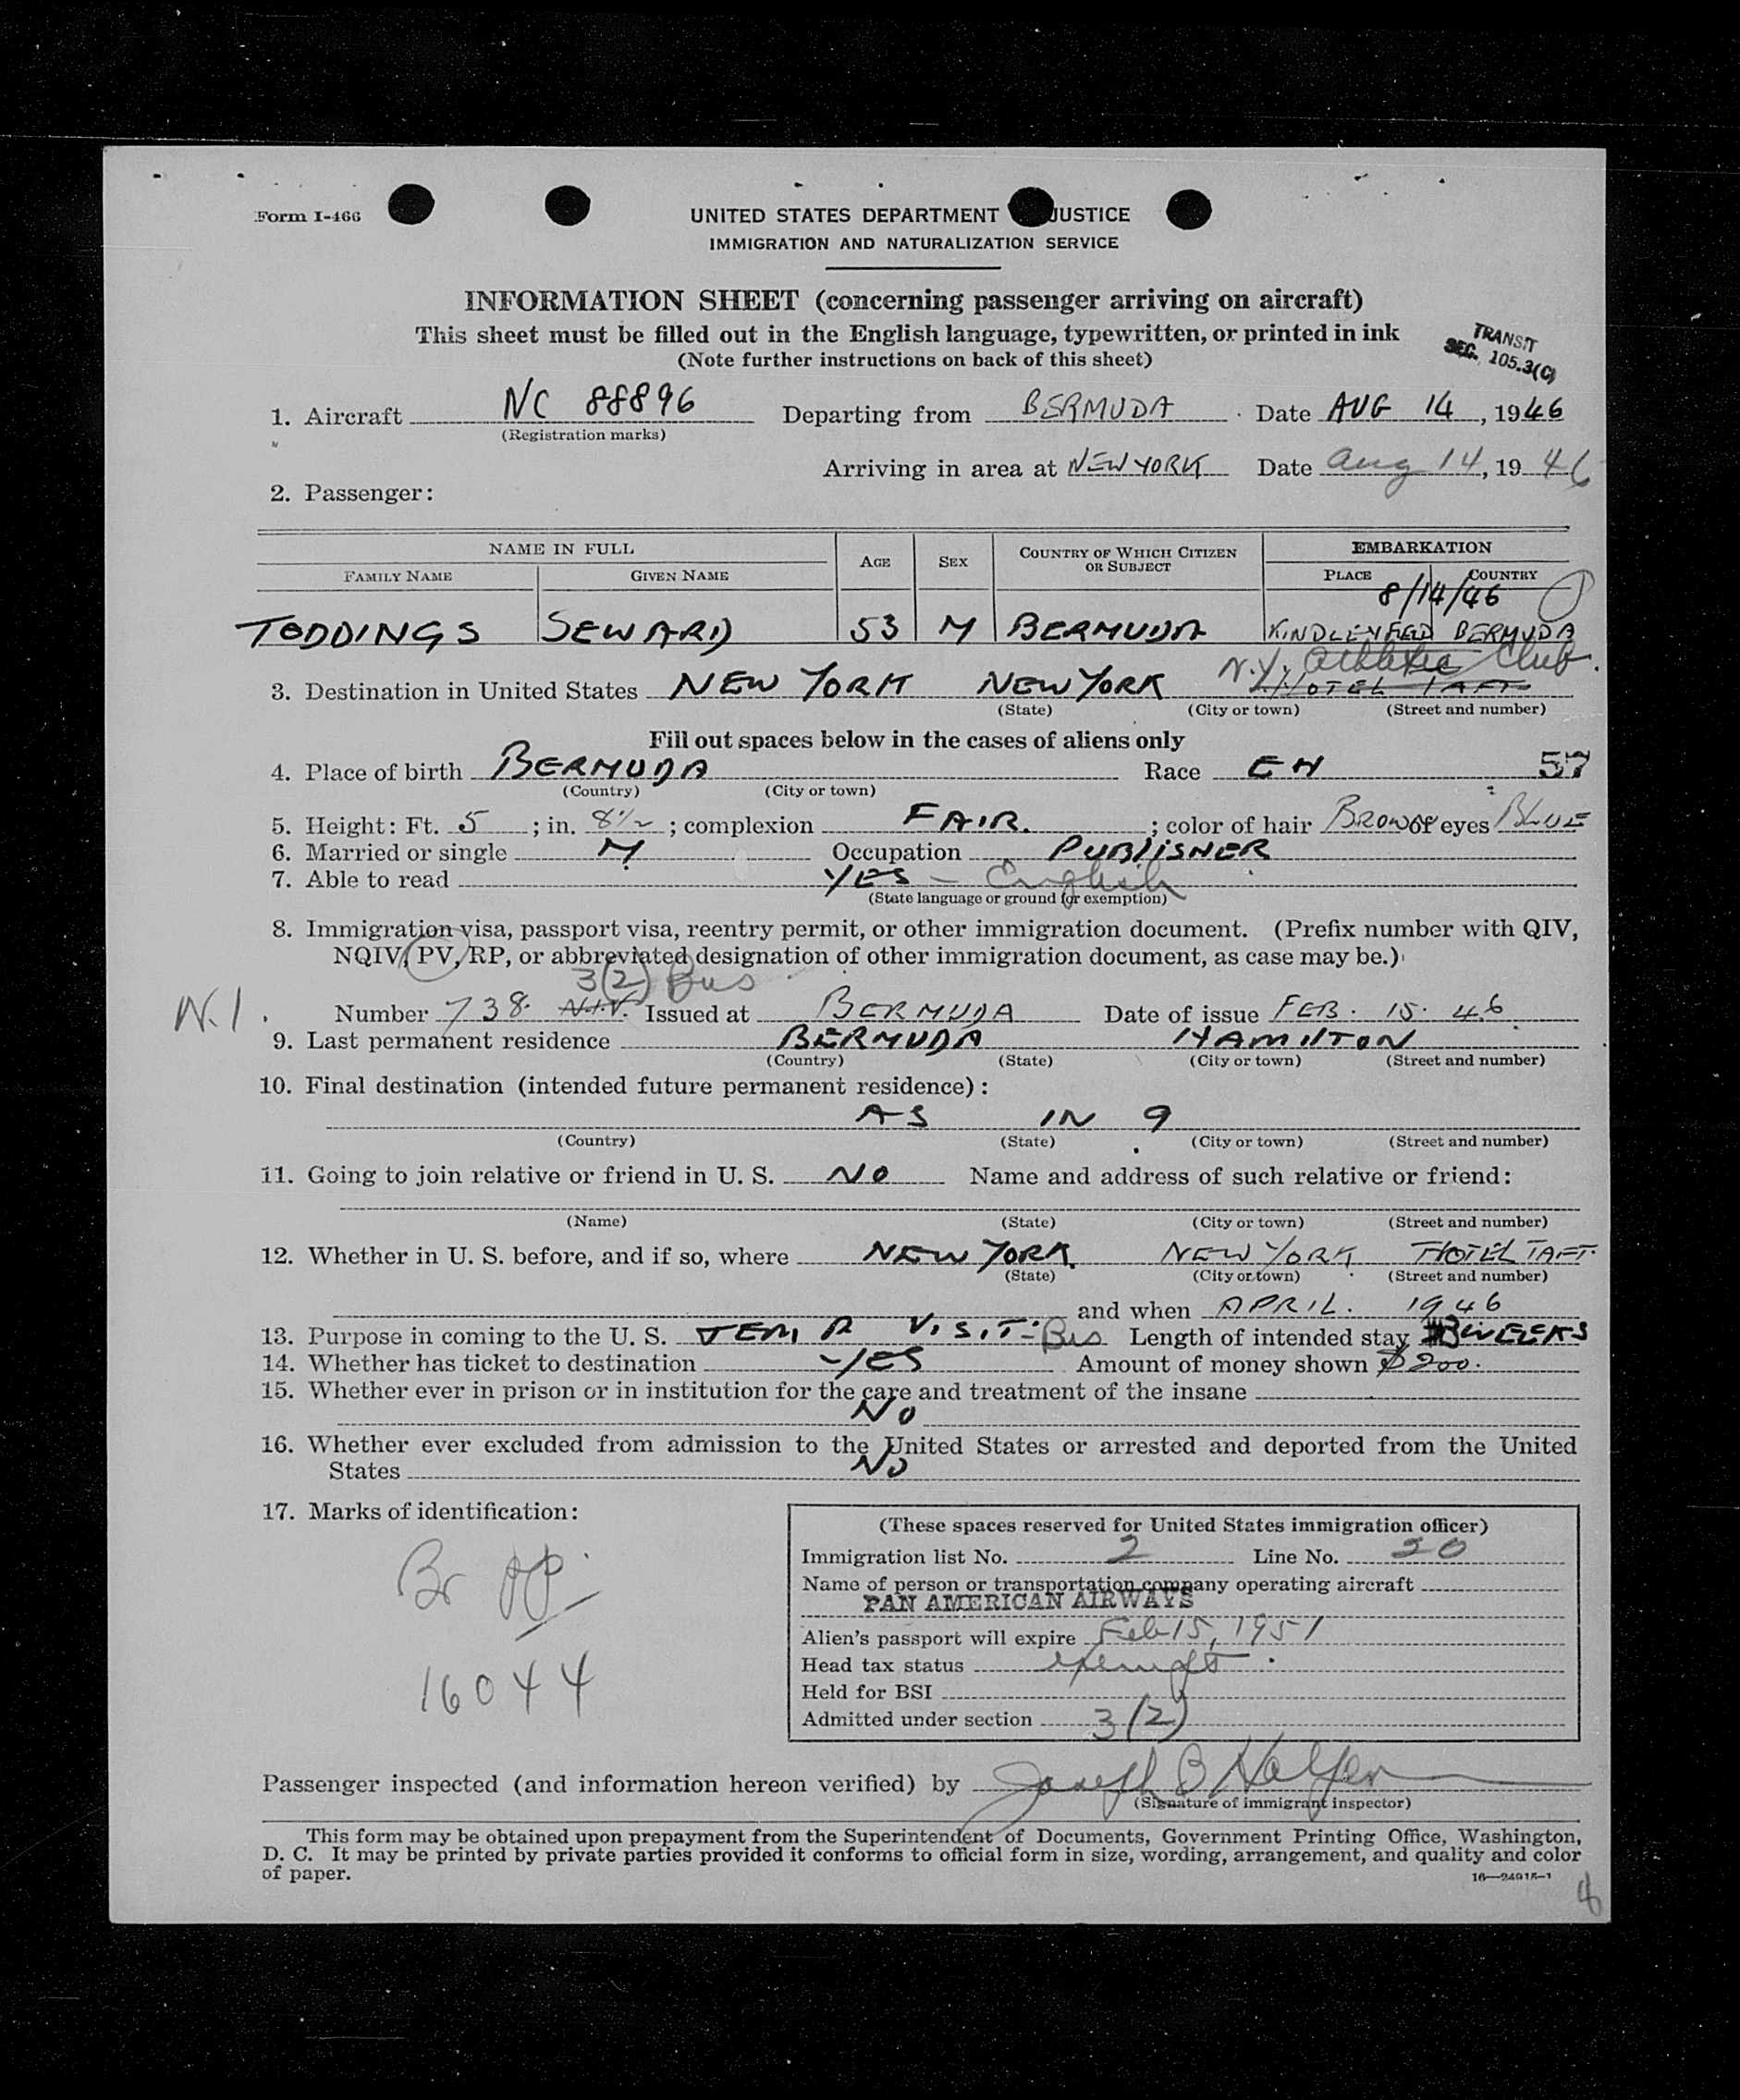 Form I-466
UNITED STATES DEPARTMENT JUSTICE
IMMIGRATION AND NATURALIZATION SERVICE
INFORMATION SHEET (concerning passenger arriving on aircraft)
This sheet must be filled out in the English language, typewritten, or printed in ink
(Note further instructions on back of this sheet)
TRANSIT
SEC. 105.3(C)
1. Aircraft NC 88896 Departing from BERMUDA Date AUG 14, 1946
(Registration marks)
Arriving in area at NEW YORK Date Aug 14, 1946
2. Passenger:
NAME IN FULL AGE SEX COUNTRY OF WHICH CITIZEN OR SUBJECT EMBARKATION
FAMILY NAME GIVEN NAME PLACE COUNTRY
8/14/46
TODDINGS SEWARD 53 M BERMUDA KINDLEY FIELD BERMUDA
N.Y. Athletic Club.
3. Destination in United States NEW YORK NEW YORK HOTEL TAFT
(State) (City or town) (Street and number)
Fill out spaces below in the cases of aliens only
4. Place of birth BERMUDA Race EN 57
(Country) (City or town)
5. Height: Ft. 5 ; in. 8½ ; complexion FAIR. ; color of hair BROWN of eyes BLUE
6. Married or single M Occupation PUBLISHER
7. Able to read YES - English
(State language or ground for exemption)
8. Immigration visa, passport visa, reentry permit, or other immigration document. (Prefix number with QIV,
NQIV, PV, RP, or abbreviated designation of other immigration document, as case may be.)
3(2) Bus
Number 738 N.I.V. Issued at BERMUDA Date of issue FEB. 15. 46.
9. Last permanent residence BERMUDA HAMILTON
(Country) (State) (City or town) (Street and number)
10. Final destination (intended future permanent residence):
AS IN 9
(Country) (State) (City or town) (Street and number)
11. Going to join relative or friend in U. S. NO Name and address of such relative or friend:
(Name) (State) (City or town) (Street and number)
12. Whether in U. S. before, and if so, where NEW YORK NEW YORK HOTEL TAFT.
(State) (City or town) (Street and number)
and when APRIL. 1946
13. Purpose in coming to the U. S. VISIT - Bus Length of intended stay 3 WEEKS
14. Whether has ticket to destination YES Amount of money shown $200.
15. Whether ever in prison or in institution for the care and treatment of the insane
NO
16. Whether ever excluded from admission to the United States or arrested and deported from the United
States NO
17. Marks of identification:
Br PP
16044
(These spaces reserved for United States immigration officer)
Immigration list No. 2 Line No. 20
Name of person or transportation company operating aircraft
PAN AMERICAN AIRWAYS
Alien's passport will expire Feb 15, 1951
Head tax status exempt
Held for BSI
Admitted under section 3(2)
Passenger inspected (and information hereon verified) by Joseph B Halfen
(Signature of immigrant inspector)
This form may be obtained upon prepayment from the Superintendent of Documents, Government Printing Office, Washington,
D. C. It may be printed by private parties provided it conforms to official form in size, wording, arrangement, and quality and color
of paper.
16—24915-1